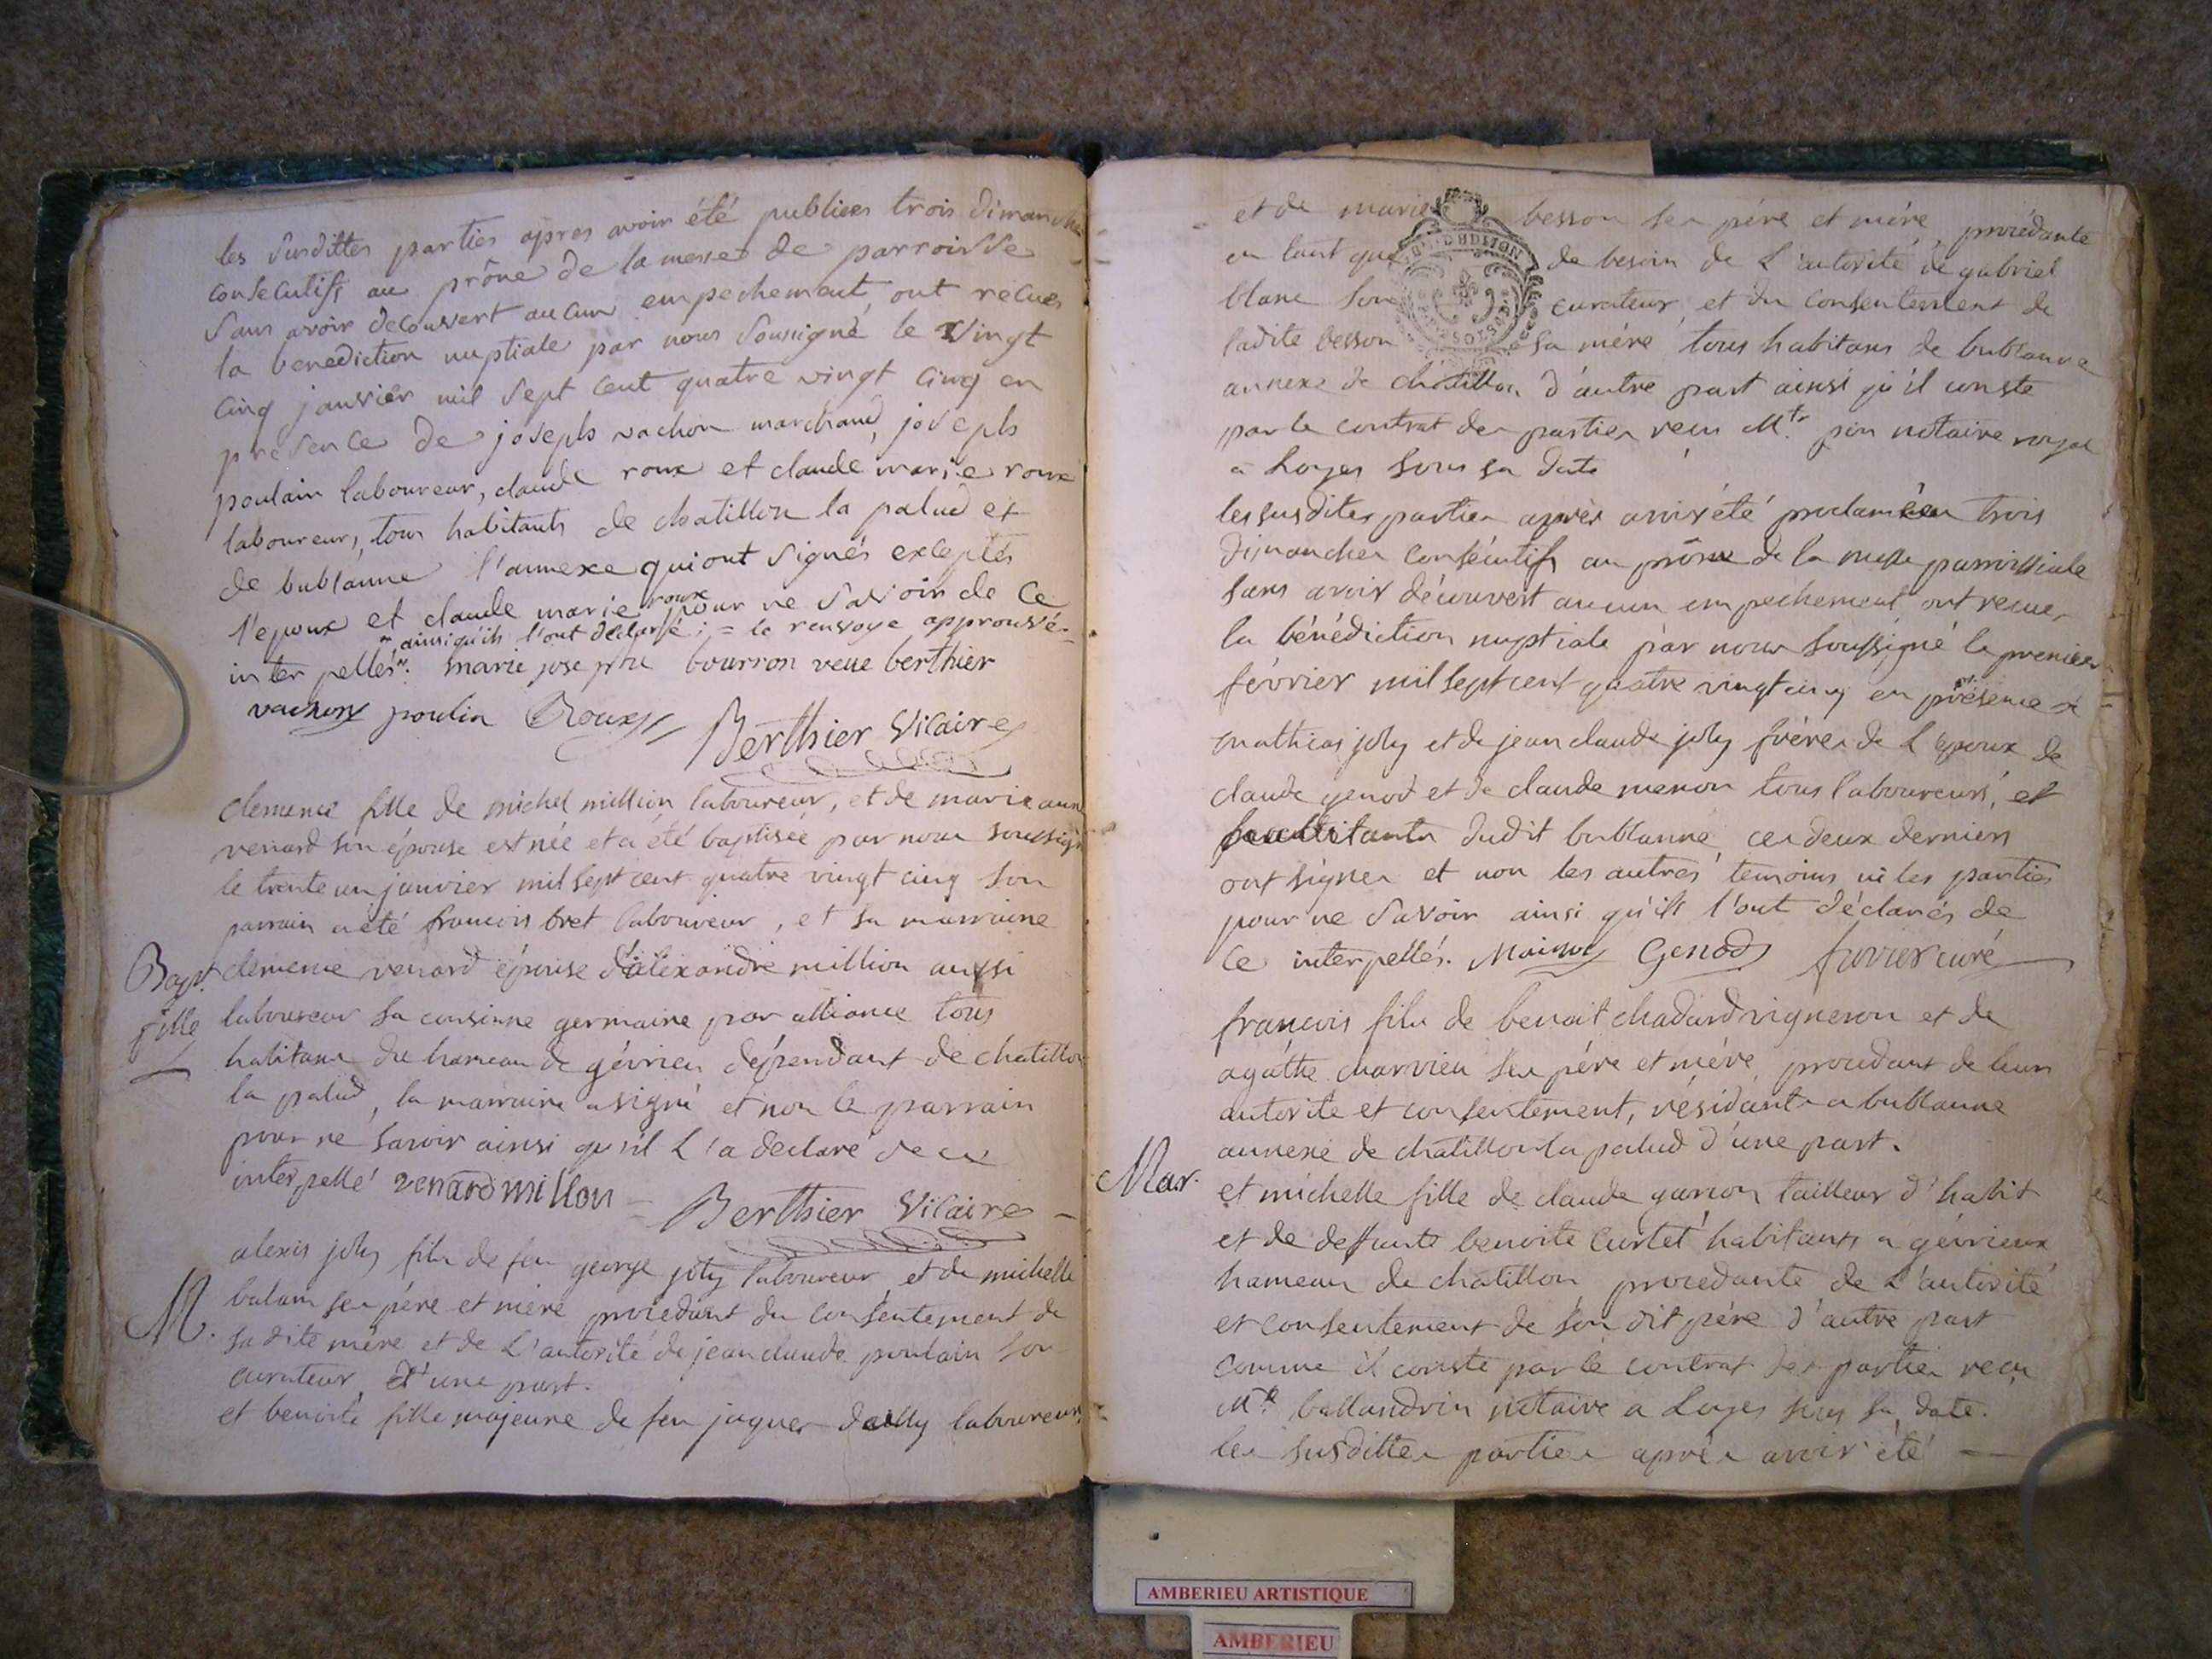 les susdittes parties apres avoir été publiees trois dimanches
consecutifs au prône de la messe de parroisse
sans avoir decouvert aucun empechement, ont recues
la benediction nuptiale par nous soussigné le vingt
cinq janvier mil sept cent quatre vingt cinq en
présence de joseph vachon marchand, joseph
poulain laboureur, claude roux et claude marie roux
laboureurs, tous habitants de chatillon la palud et
de bublanne l'annexe qui ont signés exceptés
l'epoux et claude marie roux pour ne savoir de ce
ainsi qu'ils l'ont déclaré ; = le renvoye approuvé =
interpellés. marie josephte bourron veue berthier
vachon poulin Roux Berthier Vicaire
clemence fille de michel million laboureur, et de marie anne
venard son épouse est née et a été baptisée par nous soussigné
le trente un janvier mil sept cent quatre vingt cinq son
parrain a été francois bret laboureur, et sa marraine
Bapt. clemence venard épouse d'alexandre million aussi
fille laboureur sa cousinne germaine par alliance tous
habitans du hameau de gévrieu dépendant de chatillon
la palud, la marraine a signé et non le parrain
pour ne savoir ainsi qu'il l'a declaré de ce
interpellé venard millon = Berthier Vicaire -
alexis joly fils de feu george joly laboureur et de michelle
M. balam ses pére et mere procedant du consentement de
sa dite mére et de l'autorité de jean claude poulain son
curateur d'une part.
et benoite fille majeure de feu jaques dailly laboureur
et de marie besson ses pére et mére procédante
en tant que de besoin de l'autorité de gabriel
blanc son curateur, et du consentement de
ladite besson sa mére tous habitans de bublanne
annexe de chatillon d'autre part ainsi qu'il conste
par le contrat des parties recu Mtr pin notaire royal
a Loyes sous sa date
les susdites parties après avoir été proclamées trois
dimanches consécutifs au prône de la messe parroissiale
sans avoir découvert aucun empechement ont recues
la bénédiction nuptiale par nous soussigné le premier
février mil sept cent quatre vingt cinq en présence de
mathias joly et de jean claude joly fréres de l'époux de
claude genod et de claude menon tous laboureurs, et
habitants dudit bublanne ces deux derniers
ont signes et non les autres temoins ni les parties
pour ne savoir ainsi qu'ils l'ont déclarés de
ce interpellés. Genod curé
françois fils de benoit chadard vigneron et de
agathe charvieu ses pére et mére procedant de leur
autorité et consentement, résidants a bublanne
annexe de chatillon la palud d'une part.
Mar. et michelle fille de claude garion tailleur d'habit
et de deffunte benoite curtet habitants a gévrieux
hameau de chatillon procedante de l'autorité
et consentement de son dit pére d'autre part
comme il conste par le contrat des parties recu
Mtr ballandrin notaire a Loyes sous sa date.
les susdittes parties aprés avoir été —
AMBERIEU ARTISTIQUE
AMBERIEU